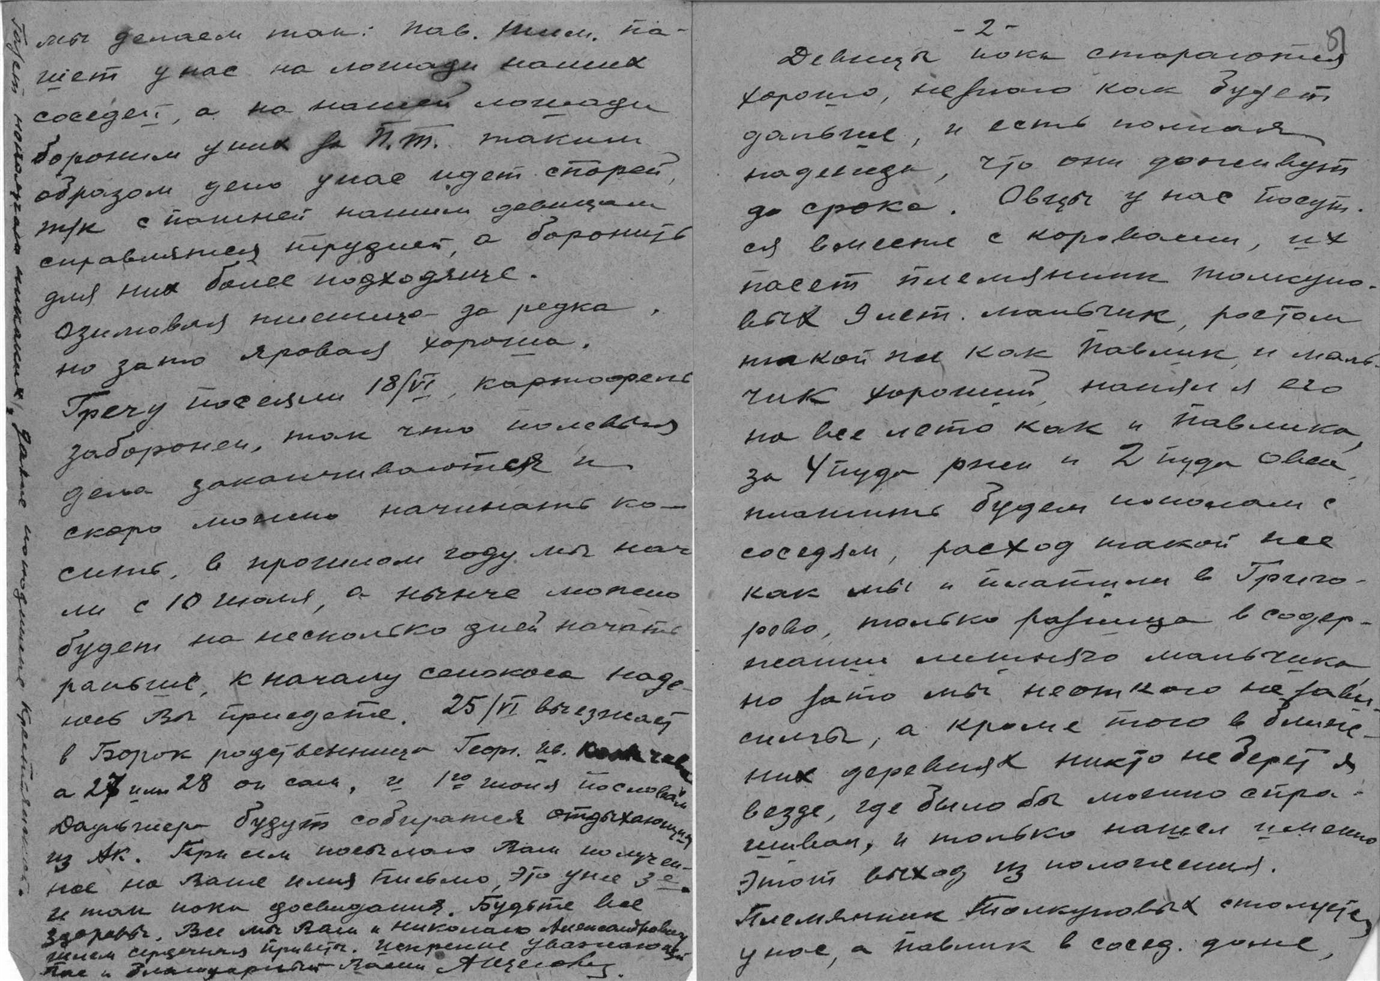 мы делаем так: Пав. Тим. па-
шет у нас на лошади наших
соседей, а на нашей лошади
бороним у них за П.Т. таким
образом дело у нас идет спорей,
т/к с пашней нашим девицам
справляться трудней, а боронить
для них более подходяще.
Озимовая пшеница за редка,
но зато яровая хороша.
Гречу посеяли 18/VI, картофель
заборонен, так что полевыя
дела заканчиваются и
скоро можно начинать ко-
сить, в прошлом году мы нач
ли с 10 июля, а нынче можно
будет на несколько дней начать
раньше, к началу сенокоса наде-
юсь Вы приедете. 25/VI выезжает
в Борок родственница Геор. Ив.
а 27 или 28 он сам, и 1го июня по словам
будут собираться отдыхающия
из Ак. При сем посылаю Вам получен-
ное на Ваше имя письмо, это уже 3е.
и так пока до свидания. Будьте все
здоровы. Все мы Вам и Николаю Александровичу
шлем сердечныя приветы. Искренне уважающий
Вас и благодарный Вами
Газет не получаем никаких, даже
- 2 -
Девицы пока стараются
хорошо, не знаю как будет
дальше, и есть полная
надежда, что они доживут
до срока. Овцы у нас пасут-
ся вместе с коровами, их
пасет племянник Толкуно-
вых 9 лет. мальчик, ростом
такой же как Павлик, и маль-
чик хороший, нанял я его
на все лето как и Павлика,
за 4 пуда ржи и 2 пуда овса,
платить будем пополам с
соседям, расход такой же
как мы и платили в Григо-
рово, только разница в содер-
жании лишняго мальчика
но зато мы не от кого не зави-
симы, а кроме того в ближ-
них деревнях никто не берет я
везде, где было бы можно спра-
шивал, и только нашел именно
этот выход из положения.
Племянник Толкуновых столуется
у нас, а Павлик в сосед. доме,